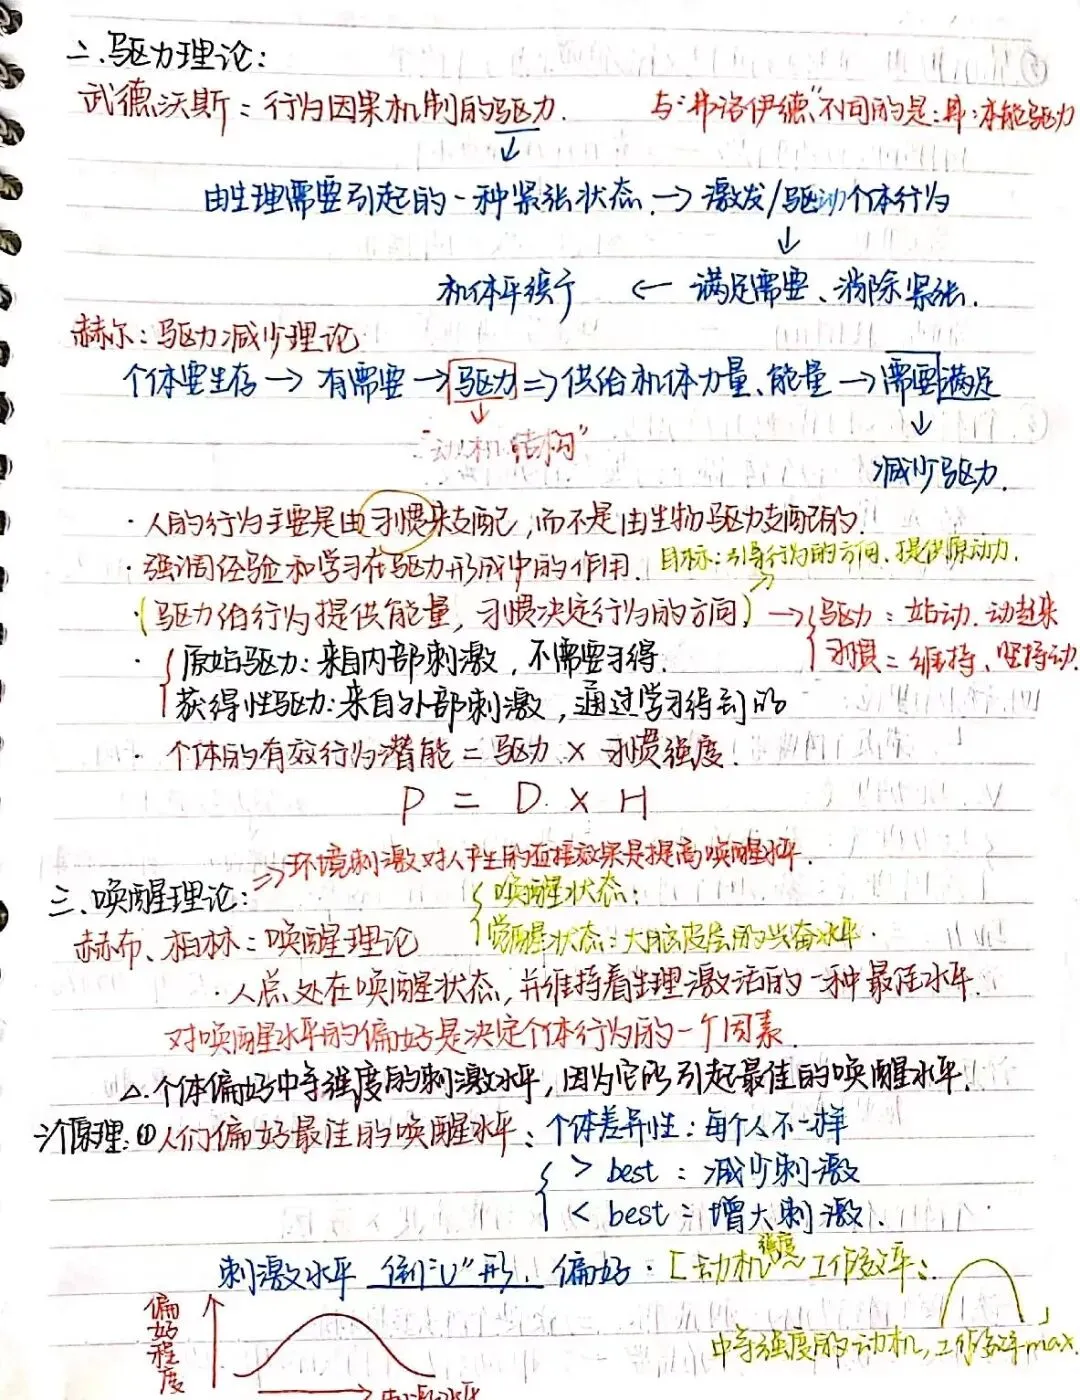 二、驱力理论：
武德沃斯：行为因果机制的驱力. 与“弗洛伊德”不同的是：弗：本能驱力
↓
由生理需要引起的一种紧张状态.→激发/驱动个体行为
↓
机体平衡 ← 满足需要、消除紧张.
赫尔：驱力减少理论
个体要生存→有需要→驱力⇒供给机体力量、能量→需要满足
↓ ↓
“动机结构”
减少驱力.
·人的行为主要是由习惯来支配，而不是由生物驱力支配的
·强调经验和学习在驱力形成中的作用. 目标：引导行为的方向、提供原动力.
·(驱力给行为提供能量，习惯决定行为的方向)→{驱力：启动.动起来
习惯：维持、坚持动.
·{原始驱力：来自内部刺激，不需要习得.
获得性驱力：来自外部刺激，通过学习得到的
·个体的有效行为潜能=驱力×习惯强度.
P = D × H
⇒环境刺激对人产生的直接效果是提高唤醒水平.
三、唤醒理论： {唤醒状态：
赫布、柏林：唤醒理论 觉醒状态：大脑皮层的兴奋水平.
·人总处在唤醒状态，并维持着生理激活的一种最佳水平.
对唤醒水平的偏好是决定个体行为的一个因素.
△.个体偏好中等强度的刺激水平，因为它能引起最佳的唤醒水平.
3个原理：①人们偏好最佳的唤醒水平：个体差异性：每个人不一样
{> best：减少刺激
< best：增大刺激.
刺激水平 倒“U”形. 偏好.[动机强度～工作效率：
中等强度的动机，工作效率max.」
偏好程度
刺激水平